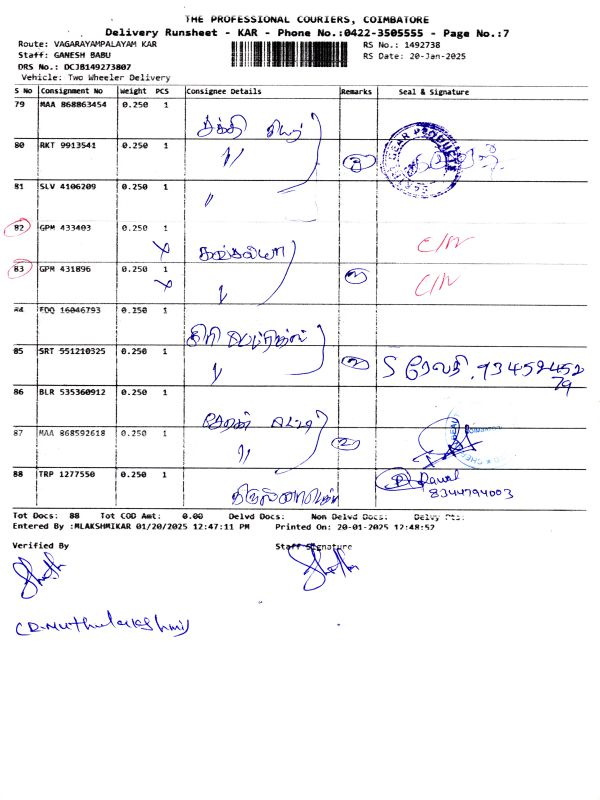 THE PROFESSIONAL COURIERS, COIMBATORE
Delivery Runsheet - KAR - Phone No.:0422-3505555 - Page No.:7
Route: VAGARAYAMPALAYAM KAR
RS No.: 1492738
Staff: GANESH BABU
RS Date: 20-Jan-2025
DRS No.: DCJB149273807
Vehicle: Two Wheeler Delivery
S No Consignment No Weight PCS Consignee Details Remarks Seal & Signature
79 MAA 868863454 0.250 1
80 RKT 9913541 0.250 1 〃
81 SLV 4106209 0.250 1 〃
82 GPM 433403 0.250 1 C/N
83 GPM 431896 0.250 1 〃 C/N
84 FDQ 16046793 0.250 1
85 SRT 551210325 0.250 1 〃 S ரேவதி. 9345845279
86 BLR 535360912 0.250 1
87 MAA 868592618 0.250 1
88 TRP 1277550 0.250 1
8344794003
Tot Docs: 88 Tot COD Amt: 0.00 Delvd Docs: Non Delvd Docs: Delvy Pts:
Entered By :MLAKSHMIKAR 01/20/2025 12:47:11 PM Printed On: 20-01-2025 12:48:52
Verified By Staff Signature